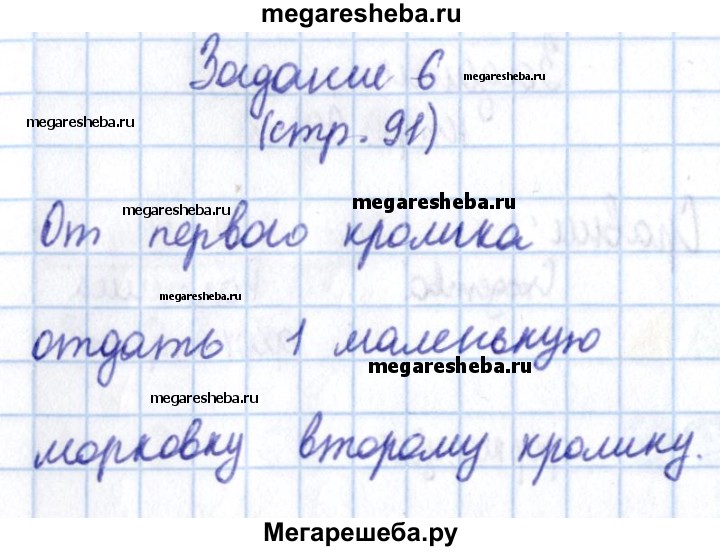 megaresheba.ru
Задание 6
megaresheba.ru
megaresheba.ru
(стр. 91)
megaresheba.ru
megaresheba.ru
От первого кролика
megaresheba.ru
отдать 1 маленькую
megaresheba.ru
megaresheba.ru
морковку второму кролику.
Мегарешеба.ру